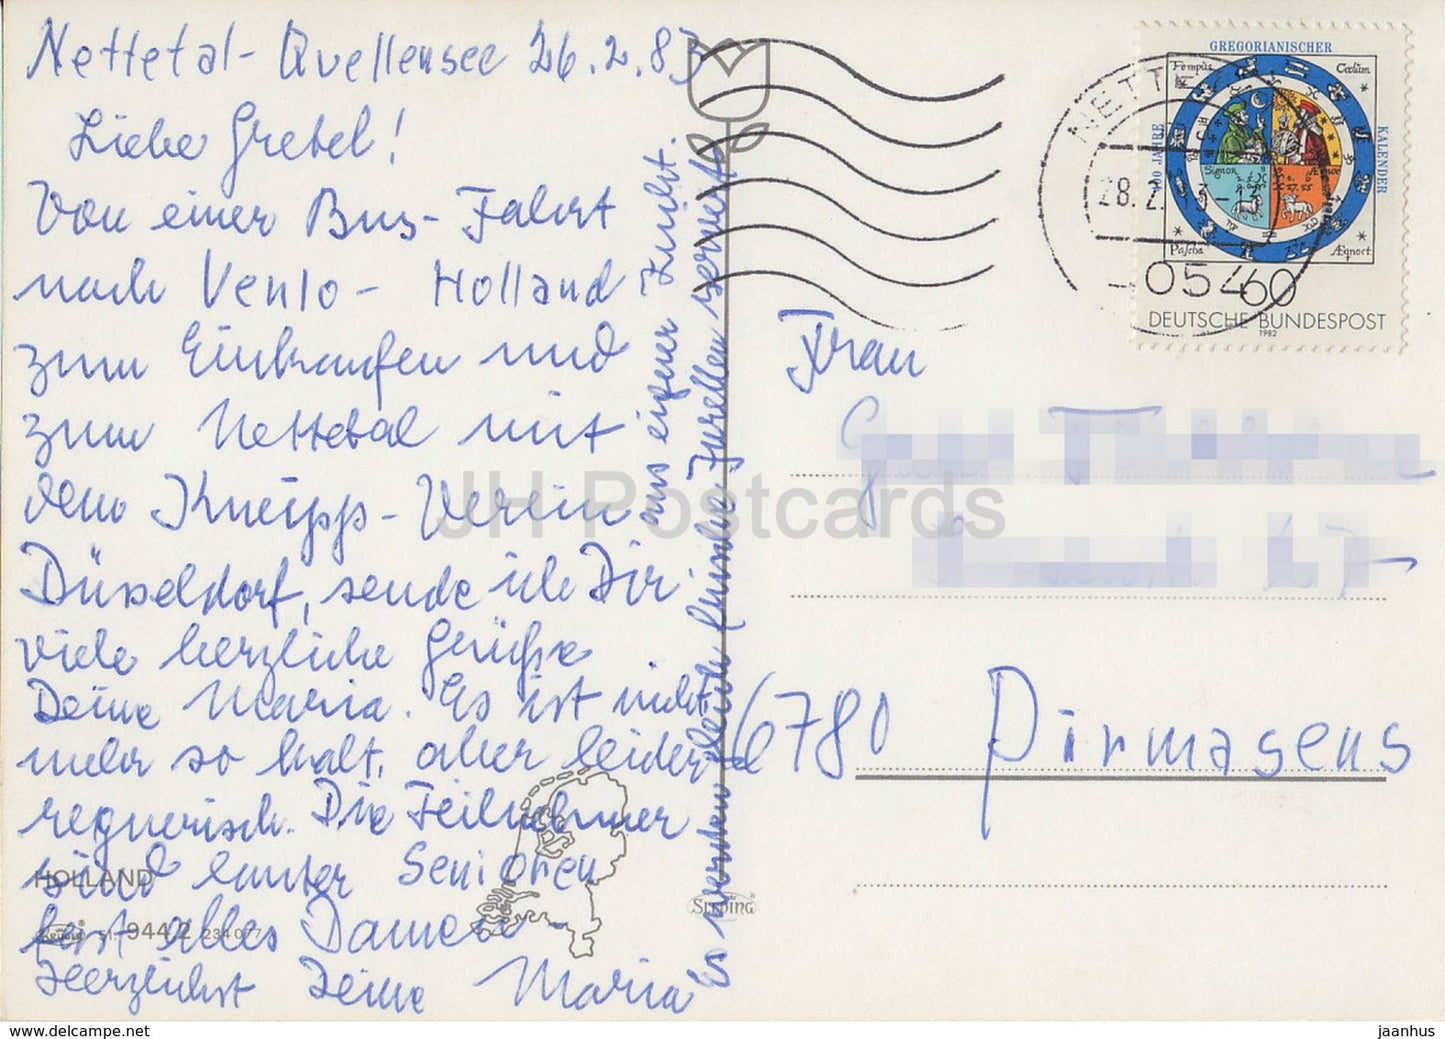 Nettetal - Quellensee 26.2.83
Liebe Gretel!
Von einer Bus-Fahrt
nach Venlo - Holland
zum Einkaufen und
zum Nettetal mit
dem Kneipp-Verein
Düsseldorf, sende ich Dir
viele herzliche Grüße
Deine Maria. Es ist nicht
mehr so kalt, aber leider
regnerisch. Die Teilnehmer
sind lauter Senioren
fast alles Damen -
Herzlichst Deine Maria
Es werden gleich frische Forellen serviert
aus eigener Zucht.
HOLLAND
944.2 234077
SLEDING
JH Postcards
GREGORIANISCHER
KALENDER
JAHRE
Tempus
Cœlum
Signor
Æquor
Pascha
Æqnoct
60
DEUTSCHE BUNDESPOST
1982
NETT
28.2. 3-13
054
Frau
6780 Pirmasens
jh-postcards.myshopify.com
jaanhus